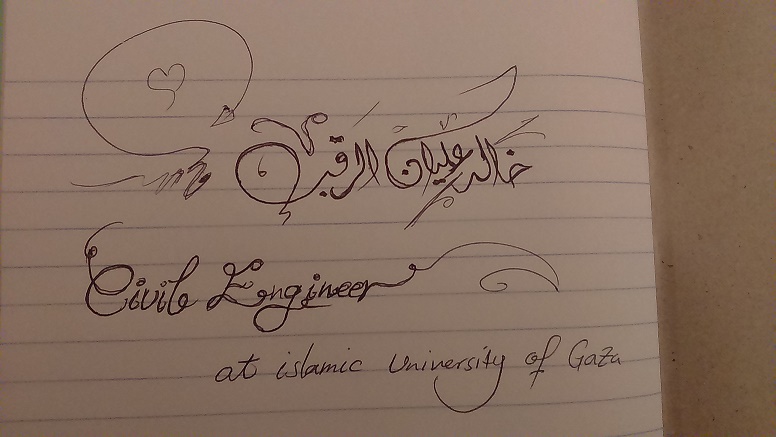 خالد عليان الرقب
Civil Engineer
at islamic University of Gaza